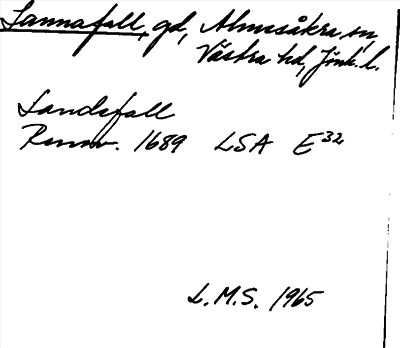 Sannafall, gd, Almesåkra sn,
Västra hd, Jönk. l.
Sandsfall
Rannv. 1689 LSA E32
L.M.S. 1965